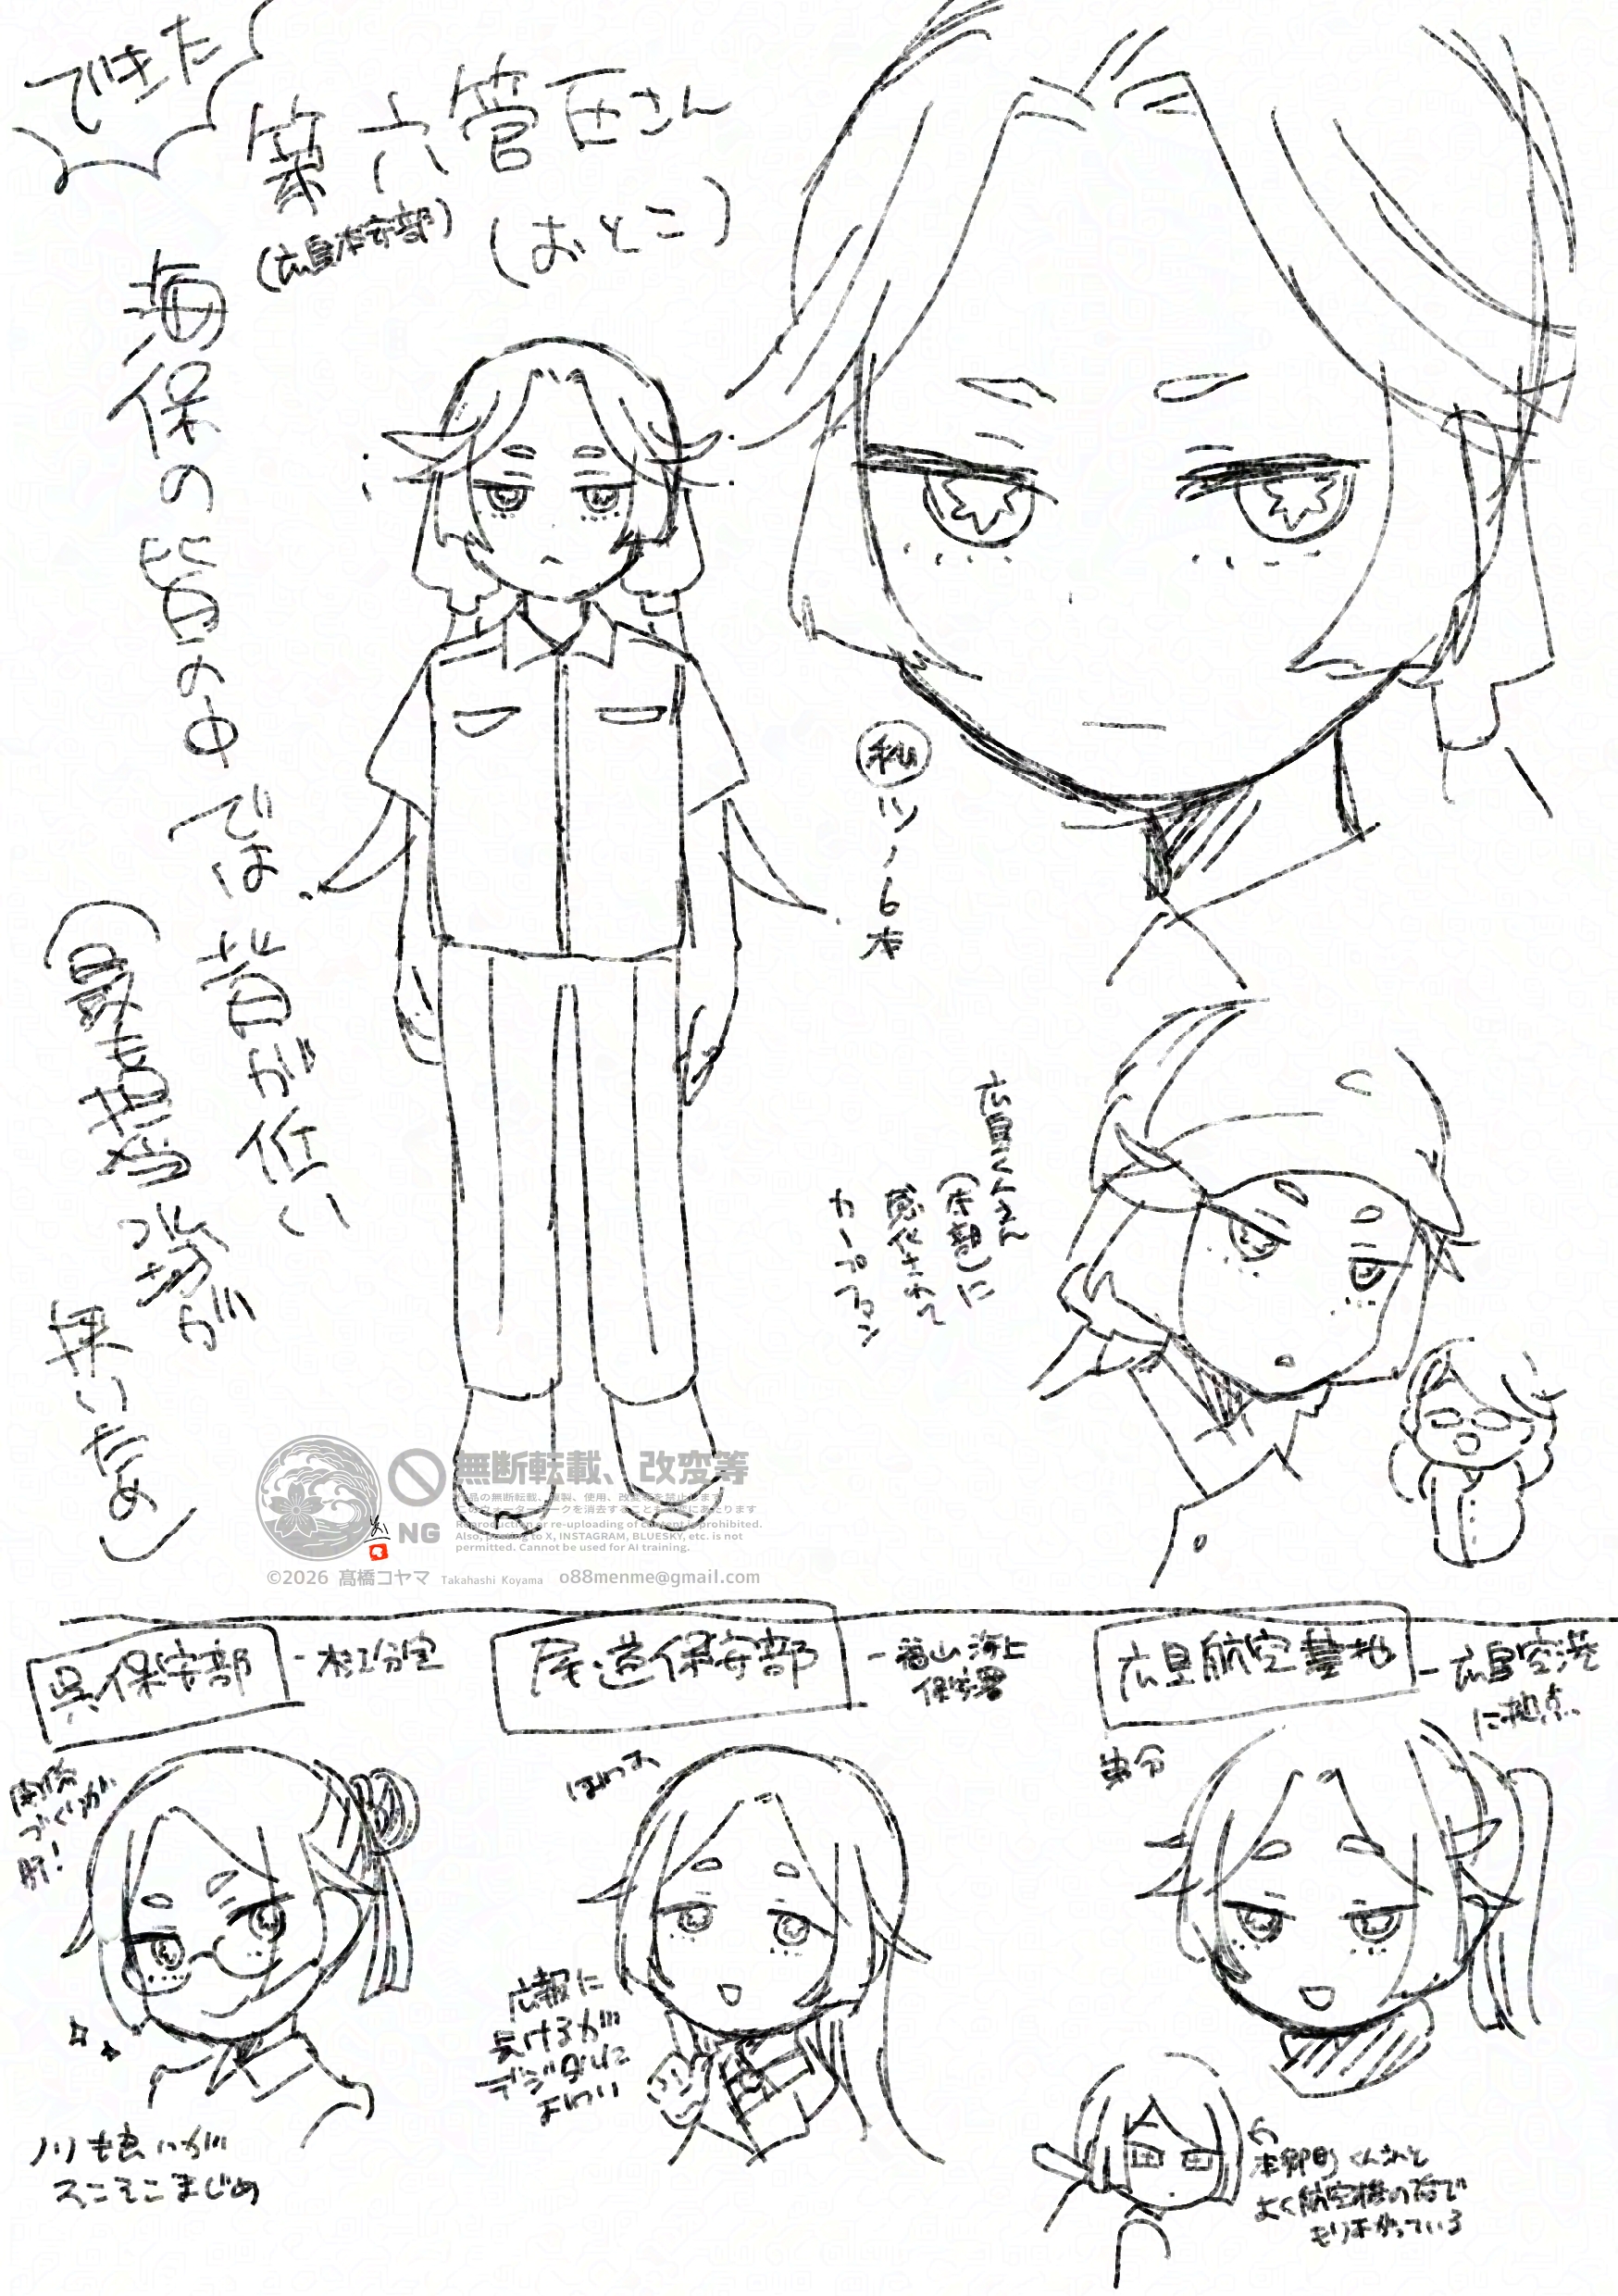 できた
第六管区さん
(広島保安部)
(おとこ)
海保の皆の中では背が低い
(最も若い隊が
無いため)
私
ツノ6本
広島くんさん
(本部)に
感化されて
カープファン
無断転載、改変等
作品の無断転載、複製、使用、改変等を禁止します
このウォーターマークを消去することも改変にあたります
NG
Reproduction or re-uploading of content is prohibited.
Also, posting to X, INSTAGRAM, BLUESKY, etc. is not
permitted. Cannot be used for AI training.
©2026 髙橋コヤマ Takahashi Koyama o88menme@gmail.com
呉保安部
尾道保安部
-福山海上
保安署
広島航空基地
-広島空港
に拠点
関係
づくりが
肝!
ノリも良いが
そこそこまじめ
ほわほわ
広報に
長けるが
デジタルに
よわい
弟分
本郷町くんさんと
よく航空機の話で
もり上がっている